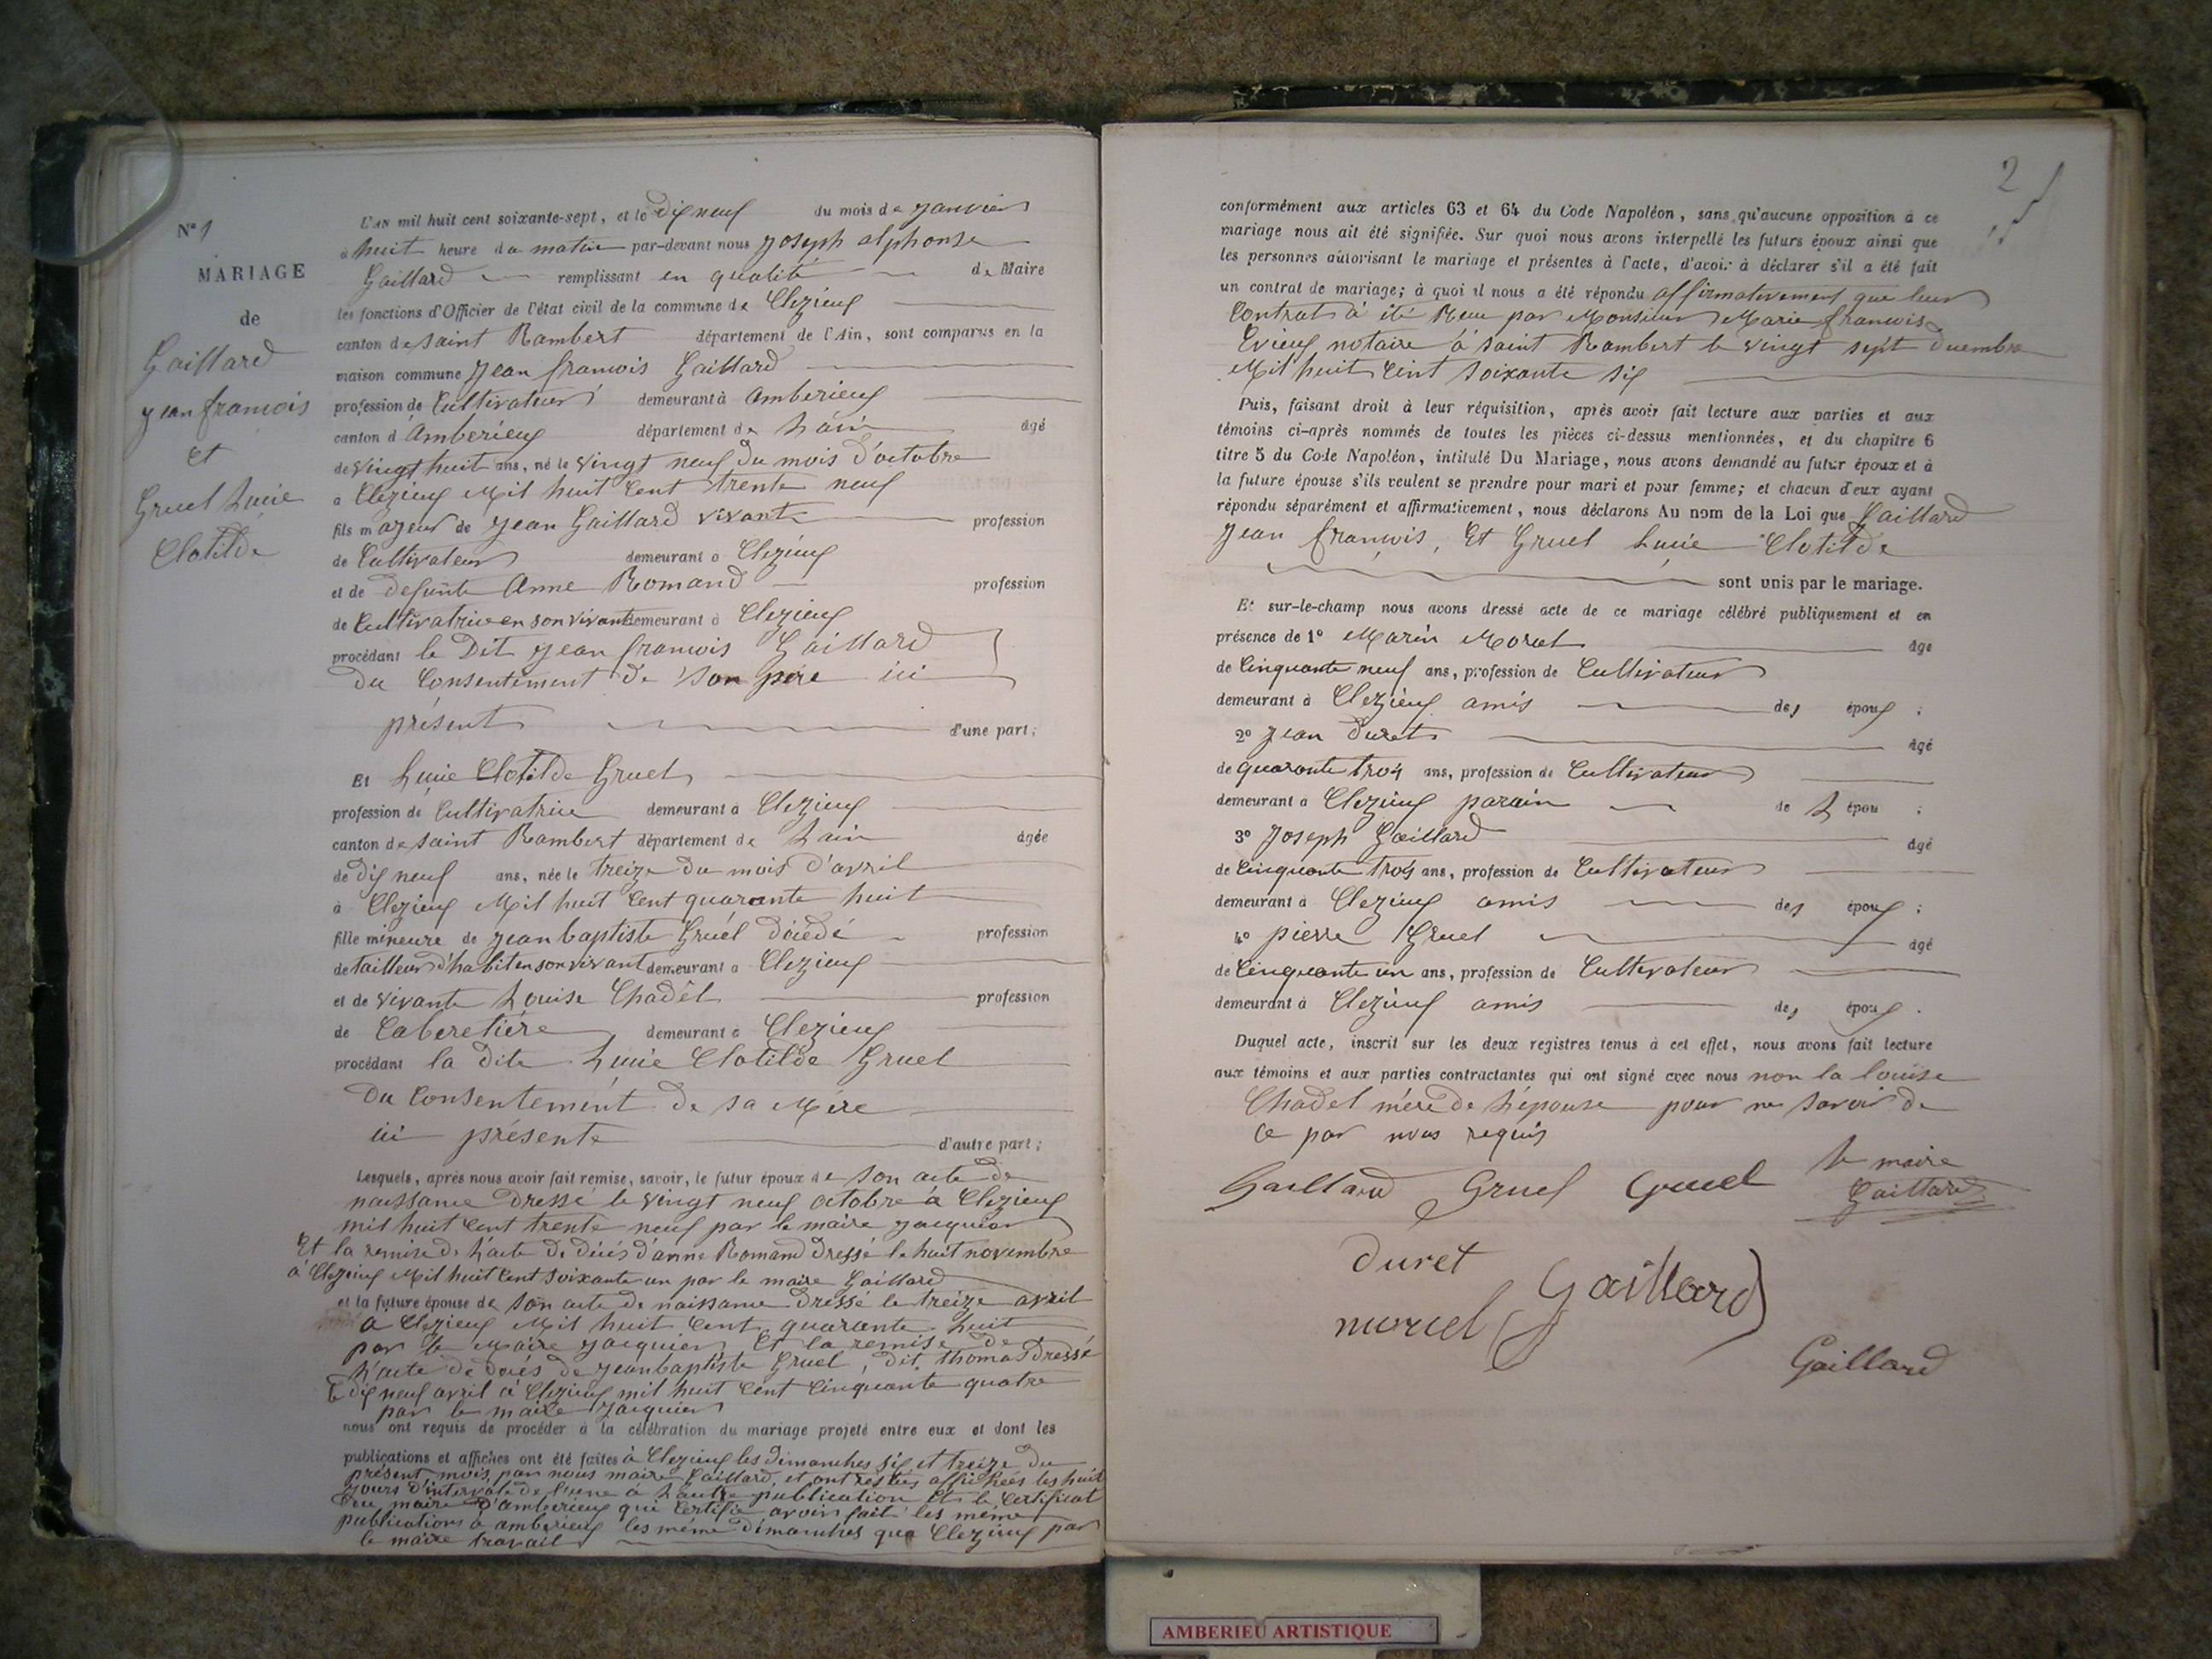 N° 1
MARIAGE
de
Gaillard
jean francois
et
Gruel Lucie
Clotilde
L'AN mil huit cent soixante-sept, et le Dix neuf du mois de janvier
à huit heure du matin par-devant nous joseph alphonse
Gaillard remplissant en qualité de Maire
les fonctions d'Officier de l'état civil de la commune de Clezieux
canton de saint Rambert département de l'Ain, sont comparus en la
maison commune jean francois Gaillard
profession de Cultivateur demeurant à Amberieux
canton d'Amberieux département de L'ain âgé
de vingt huit ans, né le vingt neuf du mois d'octobre
a Clezieux Mil huit Cent trente neuf
fils majeur de jean Gaillard vivant profession
de Cultivateur demeurant à Clezieux
et de defunte Anne Romand profession
de Cultivatrice en son vivant demeurant à Clezieux
procédant le Dit jean francois Gaillard
Du Consentement de son père ici
présent d'une part;
Et Lucie Clotilde Gruel
profession de Cultivatrice demeurant à Clezieux
canton de saint Rambert département de Lain âgée
de dix neuf ans, née le treize du mois d'avril
à Clezieux Mil huit Cent quarante huit
fille mineure de jean baptiste Gruel décédé profession
de tailleur d'habit en son vivant demeurant à Clezieux
et de vivante Louise Chadel profession
de Caberetière demeurant à Clezieux
procédant la dite Lucie Clotilde Gruel
Du Consentement de sa Mère
ici présente d'autre part;
Lesquels, après nous avoir fait remise, savoir, le futur époux de son acte de
naissance Dressé le vingt neuf octobre à Clezieux
mil huit Cent trente neuf par le maire jacquier
Et la remise de L'acte de décés d'anne Romand Dressé le huit novembre
à Clezieux Mil huit Cent soixante un par le maire Gaillard
et la future épouse de son acte de naissance Dressé le treize avril
a Clezieux Mil huit Cent quarante huit
par le Maire jacquier Et la remise de
L'acte de décés de jean baptiste Gruel, dit thomas Dressé
le dix neuf avril à Clezieux mil huit Cent Cinquante quatre
par le maire jacquier
nous ont requis de procéder à la célébration du mariage projeté entre eux et dont les
publications et affiches ont été faites à Clezieux les dimanches six et treize du
présent mois, par nous maire Gaillard, et ont restés affichées les huit
jours d'intervale de l'une à L'autre publication Et le Certificat
du maire d'amberieux qui Certifie avoir fait les même
publications à amberieux les même dimanches que Clezieux par
le maire travail
2
conformément aux articles 63 et 64 du Code Napoléon, sans qu'aucune opposition à ce
mariage nous ait été signifiée. Sur quoi nous avons interpellé les futurs époux ainsi que
les personnes autorisant le mariage et présentes à l'acte, d'avoir à déclarer s'il a été fait
un contrat de mariage; à quoi il nous a été répondu affirmativement que leur
Contrat à été Reçu par Monsieur Marie francois
notaire à saint Rambert le vingt sept Decembre
Mil huit Cent soixante six
Puis, faisant droit à leur réquisition, après avoir fait lecture aux parties et aux
témoins ci-après nommés de toutes les pièces ci-dessus mentionnées, et du chapitre 6
titre 5 du Code Napoléon, intitulé Du Mariage, nous avons demandé au futur époux et à
la future épouse s'ils veulent se prendre pour mari et pour femme; et chacun d'eux ayant
répondu séparément et affirmativement, nous déclarons Au nom de la Loi que Gaillard
jean francois, Et Gruel Lucie Clotilde
sont unis par le mariage.
Et sur-le-champ nous avons dressé acte de ce mariage célébré publiquement et en
présence de 1° Marin Morel âgé
de Cinquante neuf ans, profession de Cultivateur
demeurant à Clezieux amis des époux ;
2° jean Duret âgé
de quarante trois ans, profession de Cultivateur
demeurant à Clezieux parain de L épou ;
3° joseph Gaillard âgé
de Cinquante trois ans, profession de Cultivateur
demeurant à Clezieux amis des époux ;
4° pierre Gruel âgé
de Cinquante un ans, profession de Cultivateur
demeurant à Clezieux amis des époux .
Duquel acte, inscrit sur les deux registres tenus à cet effet, nous avons fait lecture
aux témoins et aux parties contractantes qui ont signé avec nous non la louise
Chadel mère de L'épouse pour ne savoir de
Ce par nous requis
Gaillard Gruel Gruel le maire
Gaillard
duret
Gaillard
morel
Gaillard
AMBERIEU ARTISTIQUE